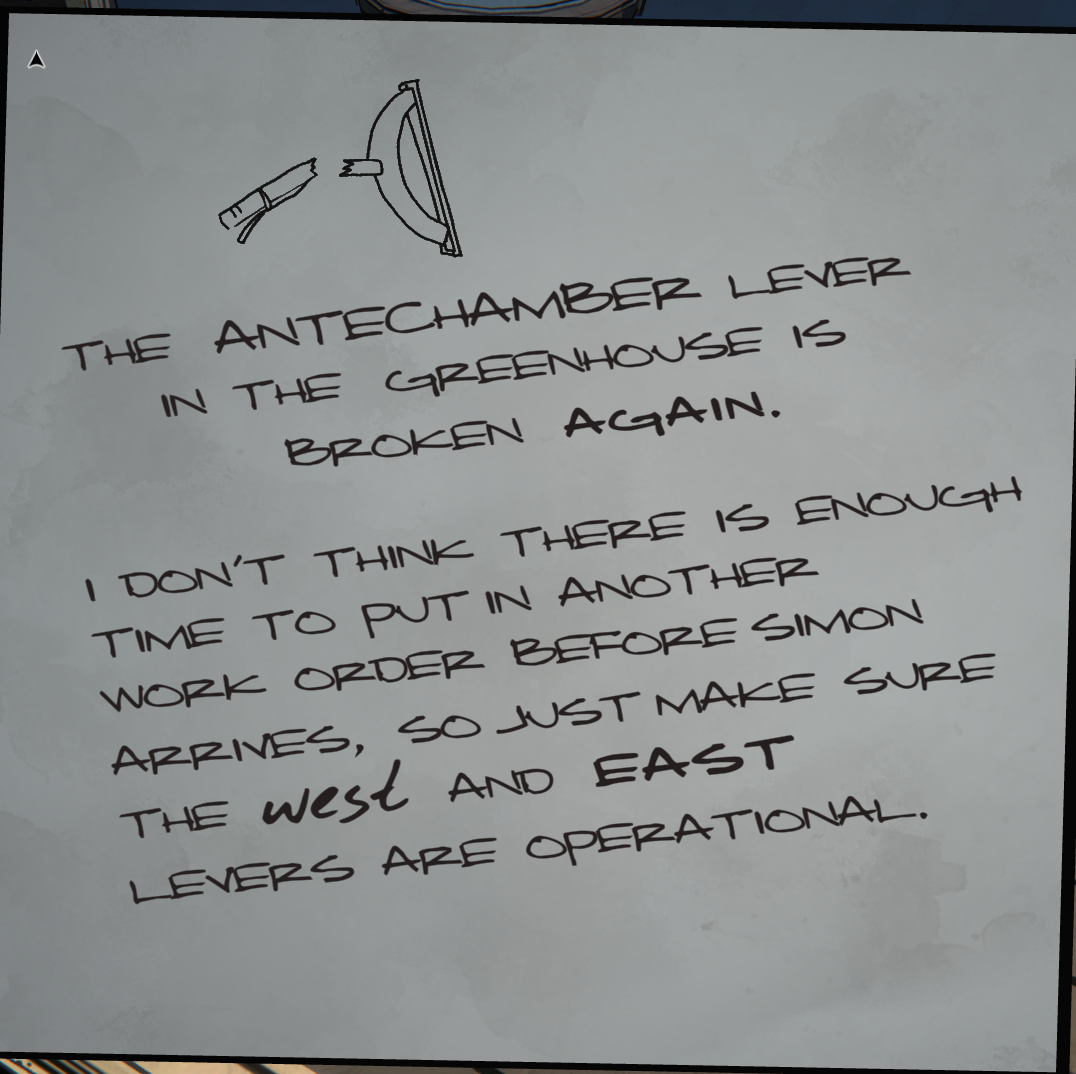 THE ANTECHAMBER LEVER
IN THE GREENHOUSE IS
BROKEN AGAIN.
I DON'T THINK THERE IS ENOUGH
TIME TO PUT IN ANOTHER
WORK ORDER BEFORE SIMON
ARRIVES, SO JUST MAKE SURE
THE west AND EAST
LEVERS ARE OPERATIONAL.